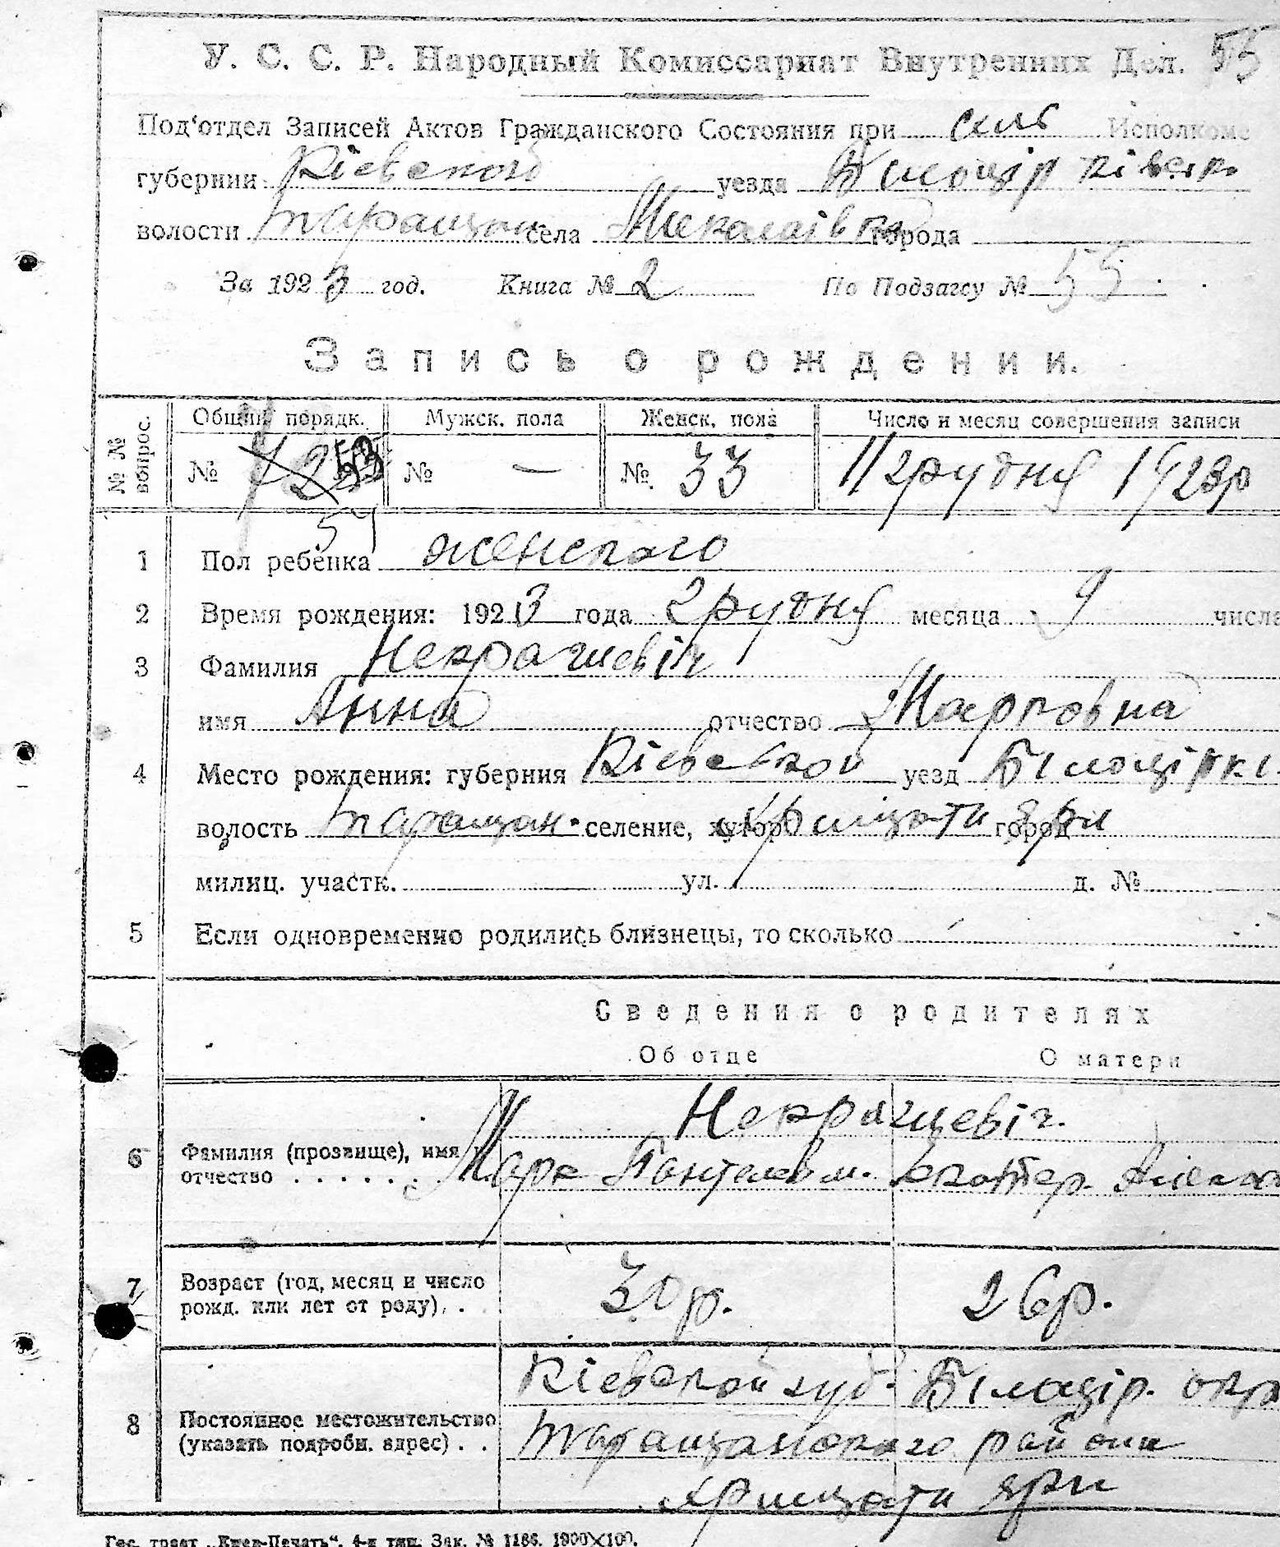 У. С. С. Р. Народный Комиссариат Внутренних Дел. 55
Под'отдел Записей Актов Гражданского Состояния при сіль Исполкоме
губернии Кіевской уезда Білоцірківськ
волости Таращан села Миколаівка города
За 1923 год. Книга № 2 По Подзагсу № 55
Запись о рождении.
№ № вопрос. Общий порядк. Мужск. пола Женск. пола Число и месяц совершения записи
№ 53 № — № 33 11 грудня 1923р
54
1 Пол ребенка женского
2 Время рождения: 1923 года грудня месяца 9 числа
3 Фамилия Некрашевіч
имя Анна отчество Марковна
4 Место рождения: губерния Кіевской уезд Білоціркі
волость Таращан. селение, хутор Хрищати Яри город
милиц. участк. ул. д. №
5 Если одновременно родились близнецы, то сколько
Сведения о родителях
Об отце О матери
Некрашевіч.
6 Фамилия (прозвище), имя
отчество . . . . . . Марк Пантелейм. Екатер. Алекса
7 Возраст (год, месяц и число
рожд. или лет от роду). . 30 р. 26 р.
Кіевской губ. Білацір. окр
8 Постоянное местожительство
(указать подробн. адрес) . . Таращанского района
Хрищати Яри
Гос. трест „Киев-Печать“. 4-я тип. Зак. № 1186. 1900×100.